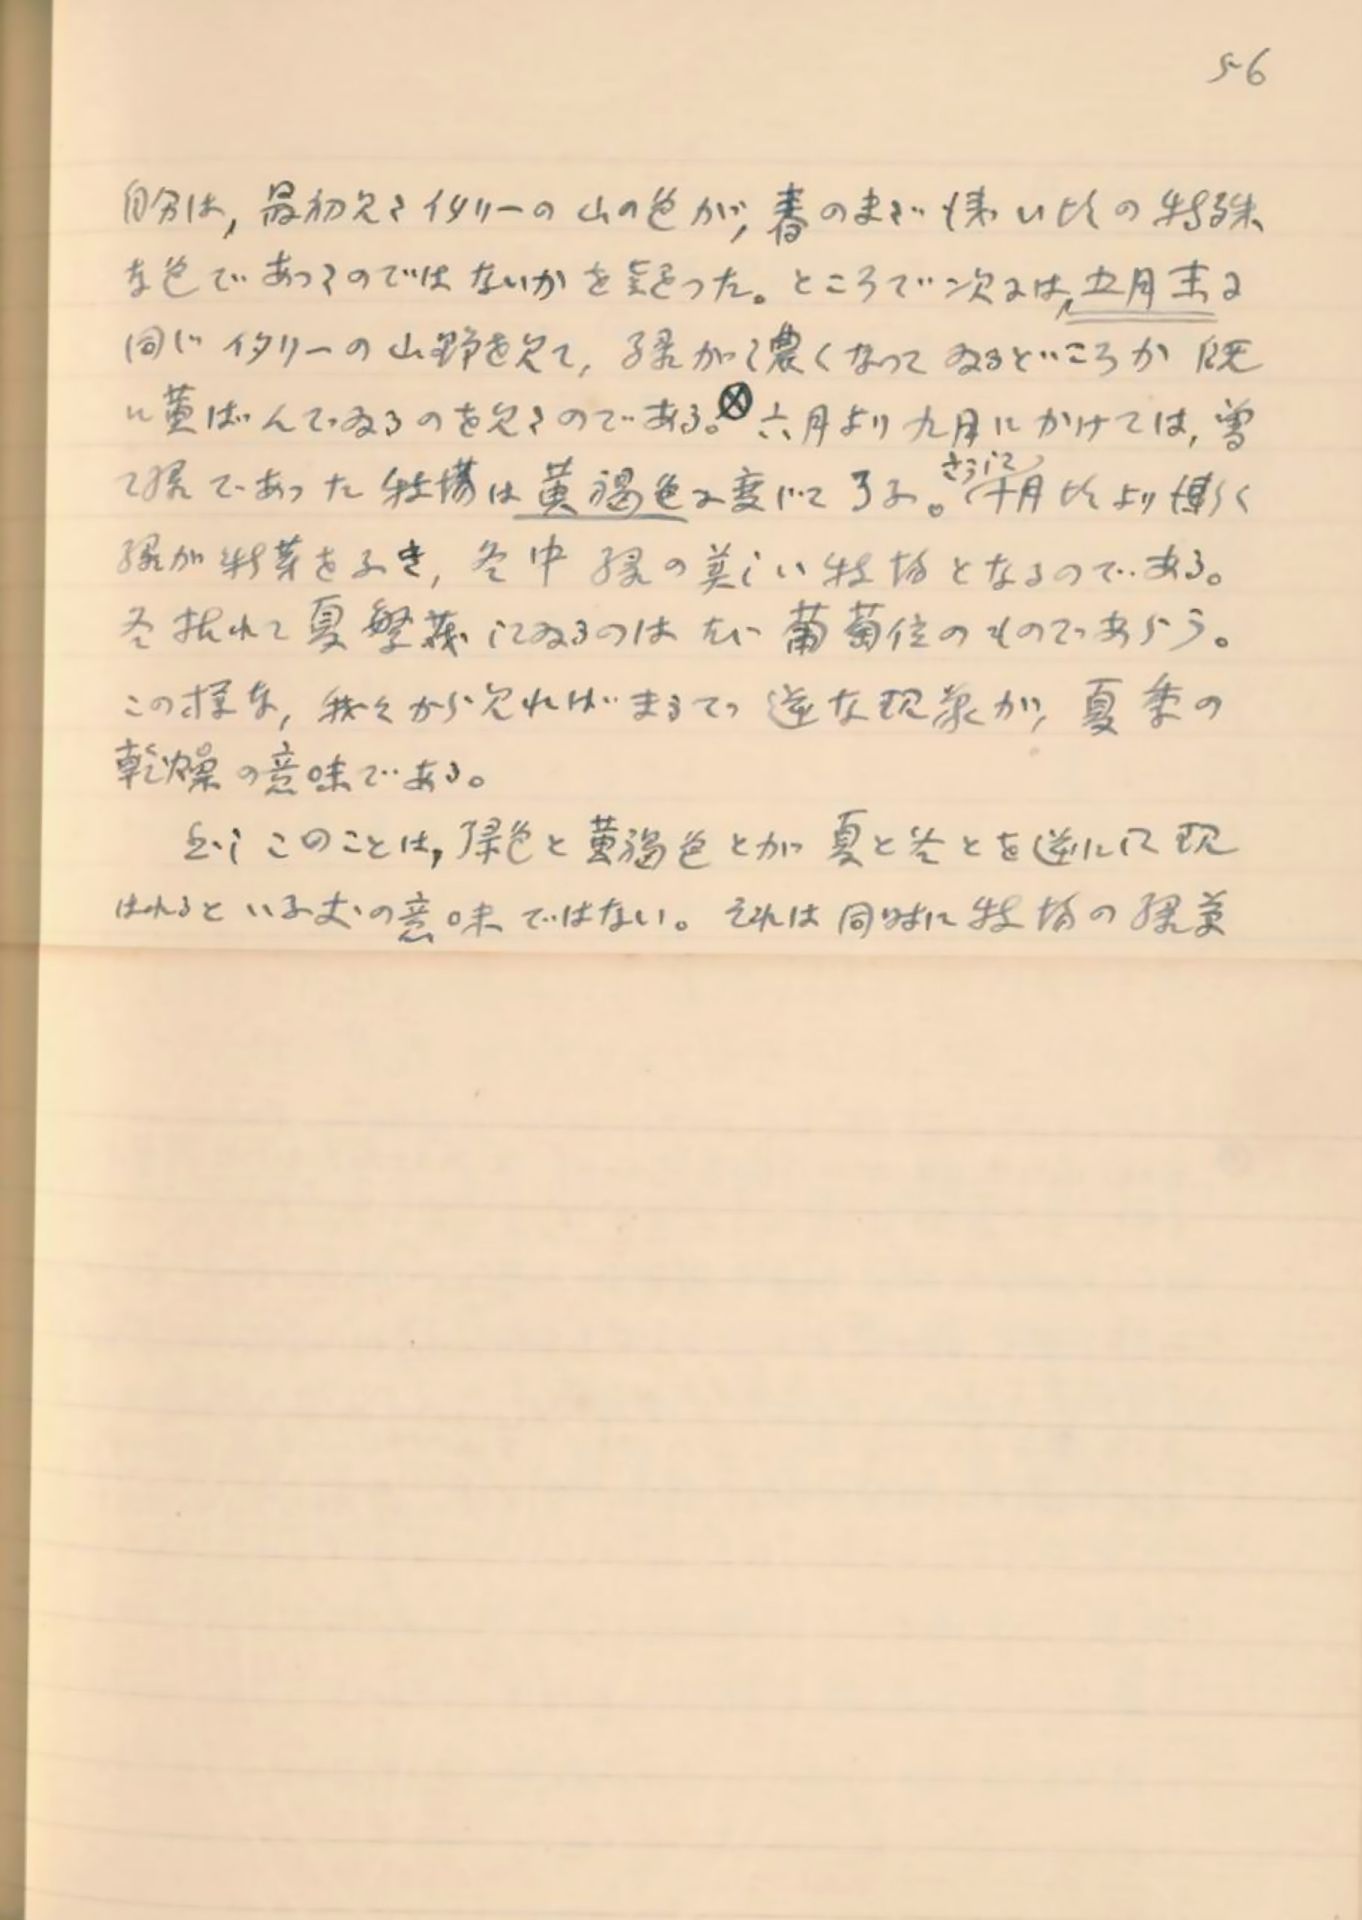 56
自分は，最初見たイタリーの山の色が，春のまだ浅い頃の特殊
な色であったのではないかを疑った。ところで次には，五月末に
同じイタリーの山野を見て，緑が濃くなってゐるどころか 既
に黄ばんでゐるのを見たのである。六月より九月にかけては，曽
て緑であった牧場は黄褐色に変じて了ふ。
さうして
十月頃より漸く
緑が新芽をふき，冬中 緑の美しい牧場となるのである。
冬枯れて夏繁茂してゐるのはたゞ葡萄位のものであらう。
この様な，我々から見ればまるで 逆な現象が，夏季の
乾燥の意味である。
但し このことは，緑色と黄褐色とが 夏と冬とを逆にして現
はれるといふ丈の意味ではない。それは同時に牧場の緑草